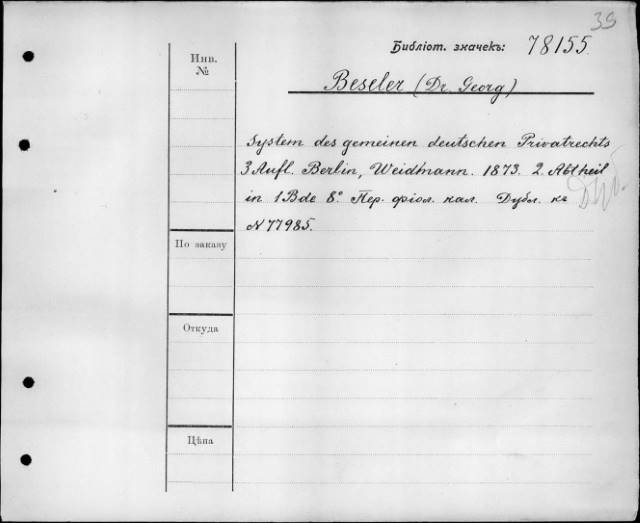 39
Библіот. значекъ: 78155.
Инв.
№
Beseler (Dr. Georg)
System des gemeinen deutschen Privatrechts
3 Aufl. Berlin, Weidmann. 1873. 2. Abtheil
in 1 Bde 8.° Пер. фіол. кал. Дубл. къ
N 77985.
Дуб.
По заказу
Откуда
Цѣна